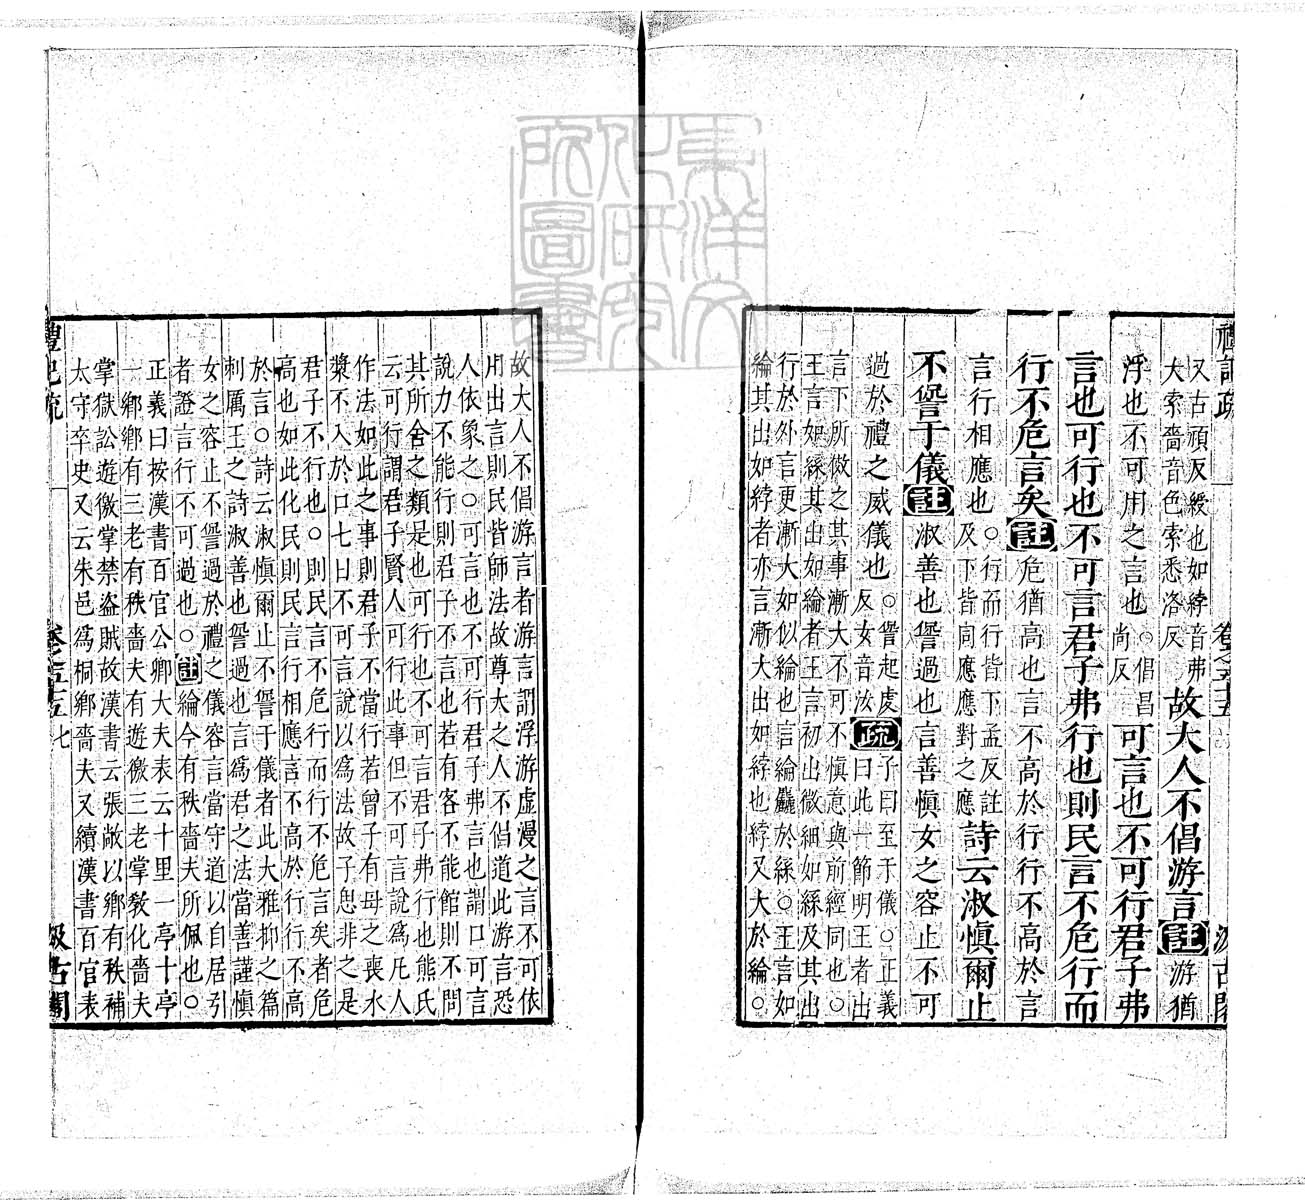 又古頑反綬也如綍音弗
大索嗇音色索悉洛反
故大人不倡游言註游猶
浮也不可用之言也
○倡昌
尚反
可言也不可行君子弗
言也可行也不可言君子弗行也則民言不危行而
行不危言矣註危猶高也言不高於行行不高於言
言行相應也
○行而行皆下孟反註
及下皆同應應對之應
詩云淑愼爾止
不諐于儀註淑善也諐過也言善愼女之容止不可
過於禮之威儀也
○諐起處
反女音汝
疏
子曰至于儀○正義
曰此一節明王者出
言下所傚之其事漸大不可不愼意與前經同也○
王言如絲其出如綸者王言初出微細如絲及其出
行於外言更漸大如似綸也言綸麤於絲○王言如
綸其出如綍者亦言漸大出如綍也綍又大於綸○
故大人不倡游言者游言謂浮游虛漫之言不可依
用出言則民皆師法故尊大之人不倡道此游言恐
人依象之○可言也不可行君子弗言也謂口可言
說力不能行則君子不言也若有客不能館則不問
其所舍之類是也可行也不可言君子弗行也熊氏
云可行謂君子賢人可行此事但不可言說爲凡人
作法如此之事則君子不當行若曾子有母之喪水
漿不入於口七日不可言說以爲法故子思非之是
君子不行也○則民言不危行而行不危言矣者危
高也如此化民則民言行相應言不高於行行不高
於言○詩云淑愼爾止不諐于儀者此大雅抑之篇
刺厲王之詩淑善也諐過也言爲君之法當善謹愼
女之容止不諐過於禮之儀容言當守道以自居引
者證言行不可過也○註綸今有秩嗇夫所佩也○
正義曰按漢書百官公卿大夫表云十里一亭十亭
一鄉鄉有三老有秩嗇夫有遊徼三老掌敎化嗇夫
掌獄訟遊徼掌禁盜賊故漢書云張敞以鄉有秩補
太守卒史又云朱邑爲桐鄉嗇夫又續漢書百官表
禮記疏
卷之五十五
七
汲古閣
東洋文
化研究
所圖書